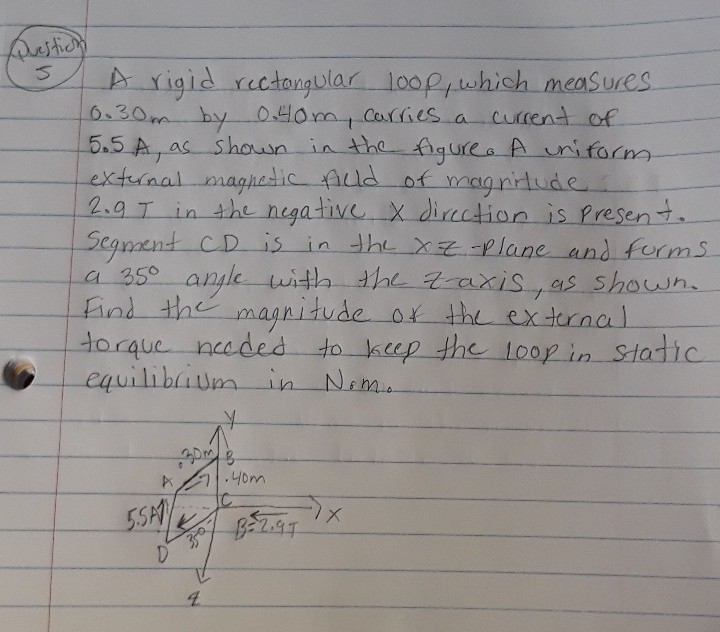 Question
5
A rigid rectangular loop, which measures
0.30m by 0.40m, carries a current of
5.5 A, as shown in the figure. A uniform
external magnetic field of magnitude
2.9 T in the negative X direction is present.
Segment CD is in the xz-plane and forms
a 35° angle with the z-axis, as shown.
Find the magnitude of the external
torque needed to keep the loop in static
equilibrium in N.m.
Y
.30m B
A .40m
C
5.5A X
B=2.9T
35°
D
z